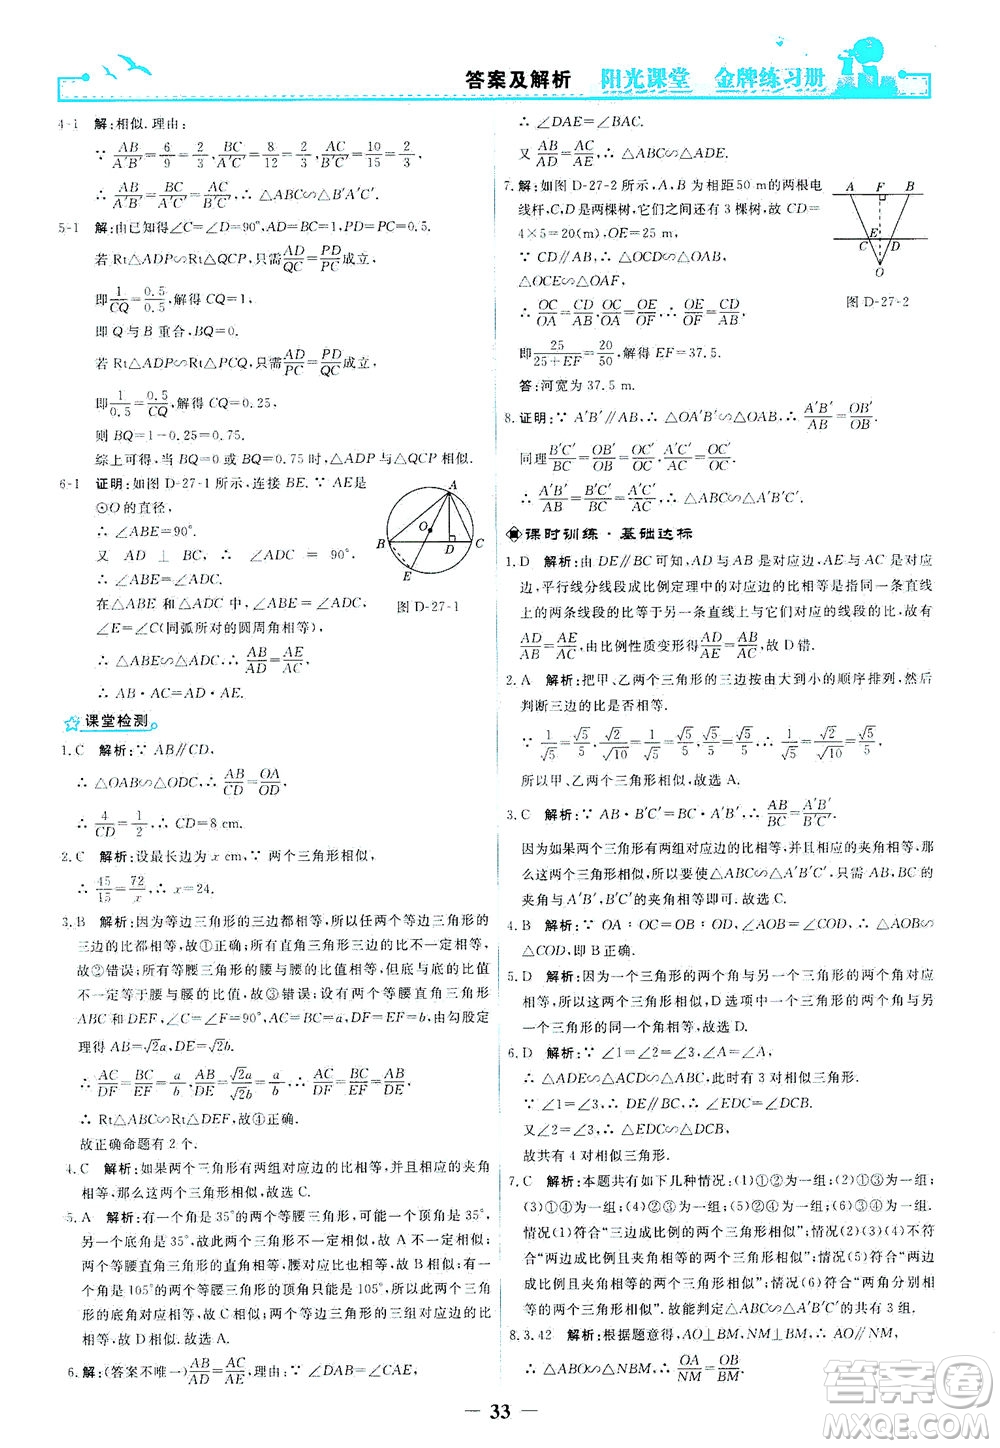 答案及解析 阳光课堂 金牌练习册
4-1 解:相似.理由:
∵ AB/A′B′=6/9=2/3,BC/A′C′=8/12=2/3,AC/B′C′=10/15=2/3,
∴ AB/A′B′=BC/A′C′=AC/B′C′.∴ △ABC∽△B′A′C′.
5-1 解:由已知得∠C=∠D=90°,AD=BC=1,PD=PC=0.5.
若 Rt△ADP∽Rt△QCP,只需AD/QC=PD/PC成立,
即1/CQ=0.5/0.5,解得 CQ=1,
即 Q 与 B 重合,BQ=0.
若 Rt△ADP∽Rt△PCQ,只需AD/PC=PD/QC成立,
即1/0.5=0.5/CQ,解得 CQ=0.25,
则 BQ=1-0.25=0.75.
综上可得,当 BQ=0 或 BQ=0.75 时,△ADP 与△QCP 相似.
6-1 证明:如图 D-27-1 所示,连接 BE.∵ AE是
⊙O 的直径,
∴ ∠ABE=90°.
又 AD ⊥ BC, ∴ ∠ADC
=90°.
在△ABE 和△ADC 中,∠ABE=∠ADC=90°,
∠E=∠C(同弧所对的圆周角相等),
∴ △ABE∽△ADC.∴ AB/AD=AE/AC.
∴ AB·AC=AD·AE.
A
O
B D C
E
图 D-27-1
课堂检测
1.C 解析:∵ AB∥CD,
∴ △OAB∽△ODC.∴ AB/CD=OA/OD.
∴ 4/CD=1/2.∴ CD=8 cm.
2.C 解析:设最长边为 x cm,∵ 两个三角形相似,
∴ 45/15=72/x.∴ x=24.
3.B 解析:因为等边三角形的三边都相等,所以任两个等边三角形的
三边的比都相等,故①正确;所有直角三角形的三边的比不一定相等,
故②错误;等腰三角形的腰与腰的比值相等,但底与底的比值
不一定等于腰与腰的比值,故③错误;设有两个等腰直角三角形
ABC 和 DEF,∠C=∠F=90°,AC=BC=a,DF=EF=b,由勾股定
理得 AB=√2a,DE=√2b,
∴ AC/DF=BC/EF=a/b,AB/DE=√2a/√2b=a/b.∴ AC/DF=BC/EF=AB/DE.
∴ Rt△ABC∽Rt△DEF,故④正确.
故正确命题有 2 个.
4.C 解析:如果两个三角形有两组对应边的比相等,并且相等的夹角
相等,那么这两个三角形相似.故选 C.
5.A 解析:有一个角是35°的两个等腰三角形,可能一个顶角是 35°,
一个底角是 35°,故这两个三角形不一定相似,故 A 错误;B 中两个
三角形都是等腰直角三角形,故 B 相似;如果有一个角是 105°的两
个等腰三角形相似,则 105°的角只能是顶角,所以这两个等腰三角形
的底角对应相等,故 C 相似;两个等边三角形的三组对应边的比相
等,故 D 相似.故选 A.
6.解:(答案不唯一)AB/AD=AC/AE,理由:∵ ∠DAB=∠CAE,
∴ ∠DAE=∠BAC.
又AB/AD=AC/AE,∴ △ABC∽△ADE.
7.解:如图 D-27-2 所示,A,B 为相距50 m的两根电
线杆,C,D 是两棵树,它们之间还有 3 棵树,故 CD=
4×5=20(m),OE=25 m,
∵ CD∥AB,∴ △OCD∽△OAB,
△OCE∽△OAF.
∴ OC/OA=CD/AB,OC/OA=OE/OF.∴ OE/OF=CD/AB,
即25/(25+EF)=20/50,解得 EF=37.5.
答:河宽为 37.5 m.
A F B
C E D
O
图 D-27-2
8.证明:∵ A′B′∥AB,∴ △OA′B′∽△OAB,∴ A′B′/AB=OB′/OB.
同理B′C′/BC=OB′/OB=OC′/OC=A′C′/AC.
∴ A′B′/AB=B′C′/BC=A′C′/AC.∴ △ABC∽△A′B′C′.
课时训练·基础达标
1.D 解析:由 DE∥BC 可知,AD 与 AB 是对应边,AE 与 AC 是对应
边,平行线分线段成比例定理中的对应边的比相等是指同一条直线
上的两条线段的比等于另一条直线上与它们对应的线段的比,故有
AD/AB=AE/AC,由比例性质变形得AD/AE=AB/AC,故 D 错.
2.A 解析:把甲、乙两个三角形的三边按由大到小的顺序排列,然后
判断三边的比是否相等.
∵ 1/√5=√5/5,√2/√10=√5/5,√5/5=√5/5,∴ 1/√5=√2/√10=√5/5.
所以甲、乙两个三角形相似,故选 A.
3.C 解析:∵ AB·B′C′=BC·A′B′,∴ AB/BC=A′B′/B′C′.
因为如果两个三角形有两组对应边的比相等,并且夹角相等,那
么这两个三角形相似.所以,要使△ABC∽△A′B′C′,只要 AB 与 BC 的
夹角与 A′B′ 与 B′C′ 的夹角相等即可.故选 C.
4.B 解析:∵ OA∶OC=OB∶OD,∠AOB=∠COD,∴ △AOB∽
△COD,即 B 正确.
5.D 解析:因为一个三角形的两个角与另一个三角形的两个角对应
相等,所以这两个三角形相似,D 选项中一个三角形的三个角与另
一个三角形的三个角都对应相等,故选 D.
6.D 解析:∵ ∠1=∠2=∠3,∠A=∠A,
∴ △ADE∽△ACD∽△ABC,此时有 3 对相似三角形.
∵ ∠1=∠3,∴ DE∥BC.∴ ∠EDC=∠DCB.
又∠2=∠3,∴ △EDC∽△DCB.
故共有 4 对相似三角形.
7.C 解析:本题共有如下几种情况:(1)①②为一组;(2)①③为一组;
(3)①④为一组;(4)②③为一组;(5)②④为一组;(6)③④为一组.
情况(1)符合“三边成比例的两个三角形相似”;情况(2)(3)(4)不符
合“两边成比例且夹角相等的两个三角形相似”;情况(5)符合“两边
成比例且夹角相等的两个三角形相似”;情况(6)符合“两角分别相
等的两个三角形相似”.故能判定△ABC∽△A′B′C′的共有 3 组.
8.3.42 解析:根据题意得,AO⊥BM,NM⊥BM,∴ AO∥NM,
∴ △ABO∽△NBM,∴ OA/NM=OB/BM.
33
答案圈
MXQE.COM